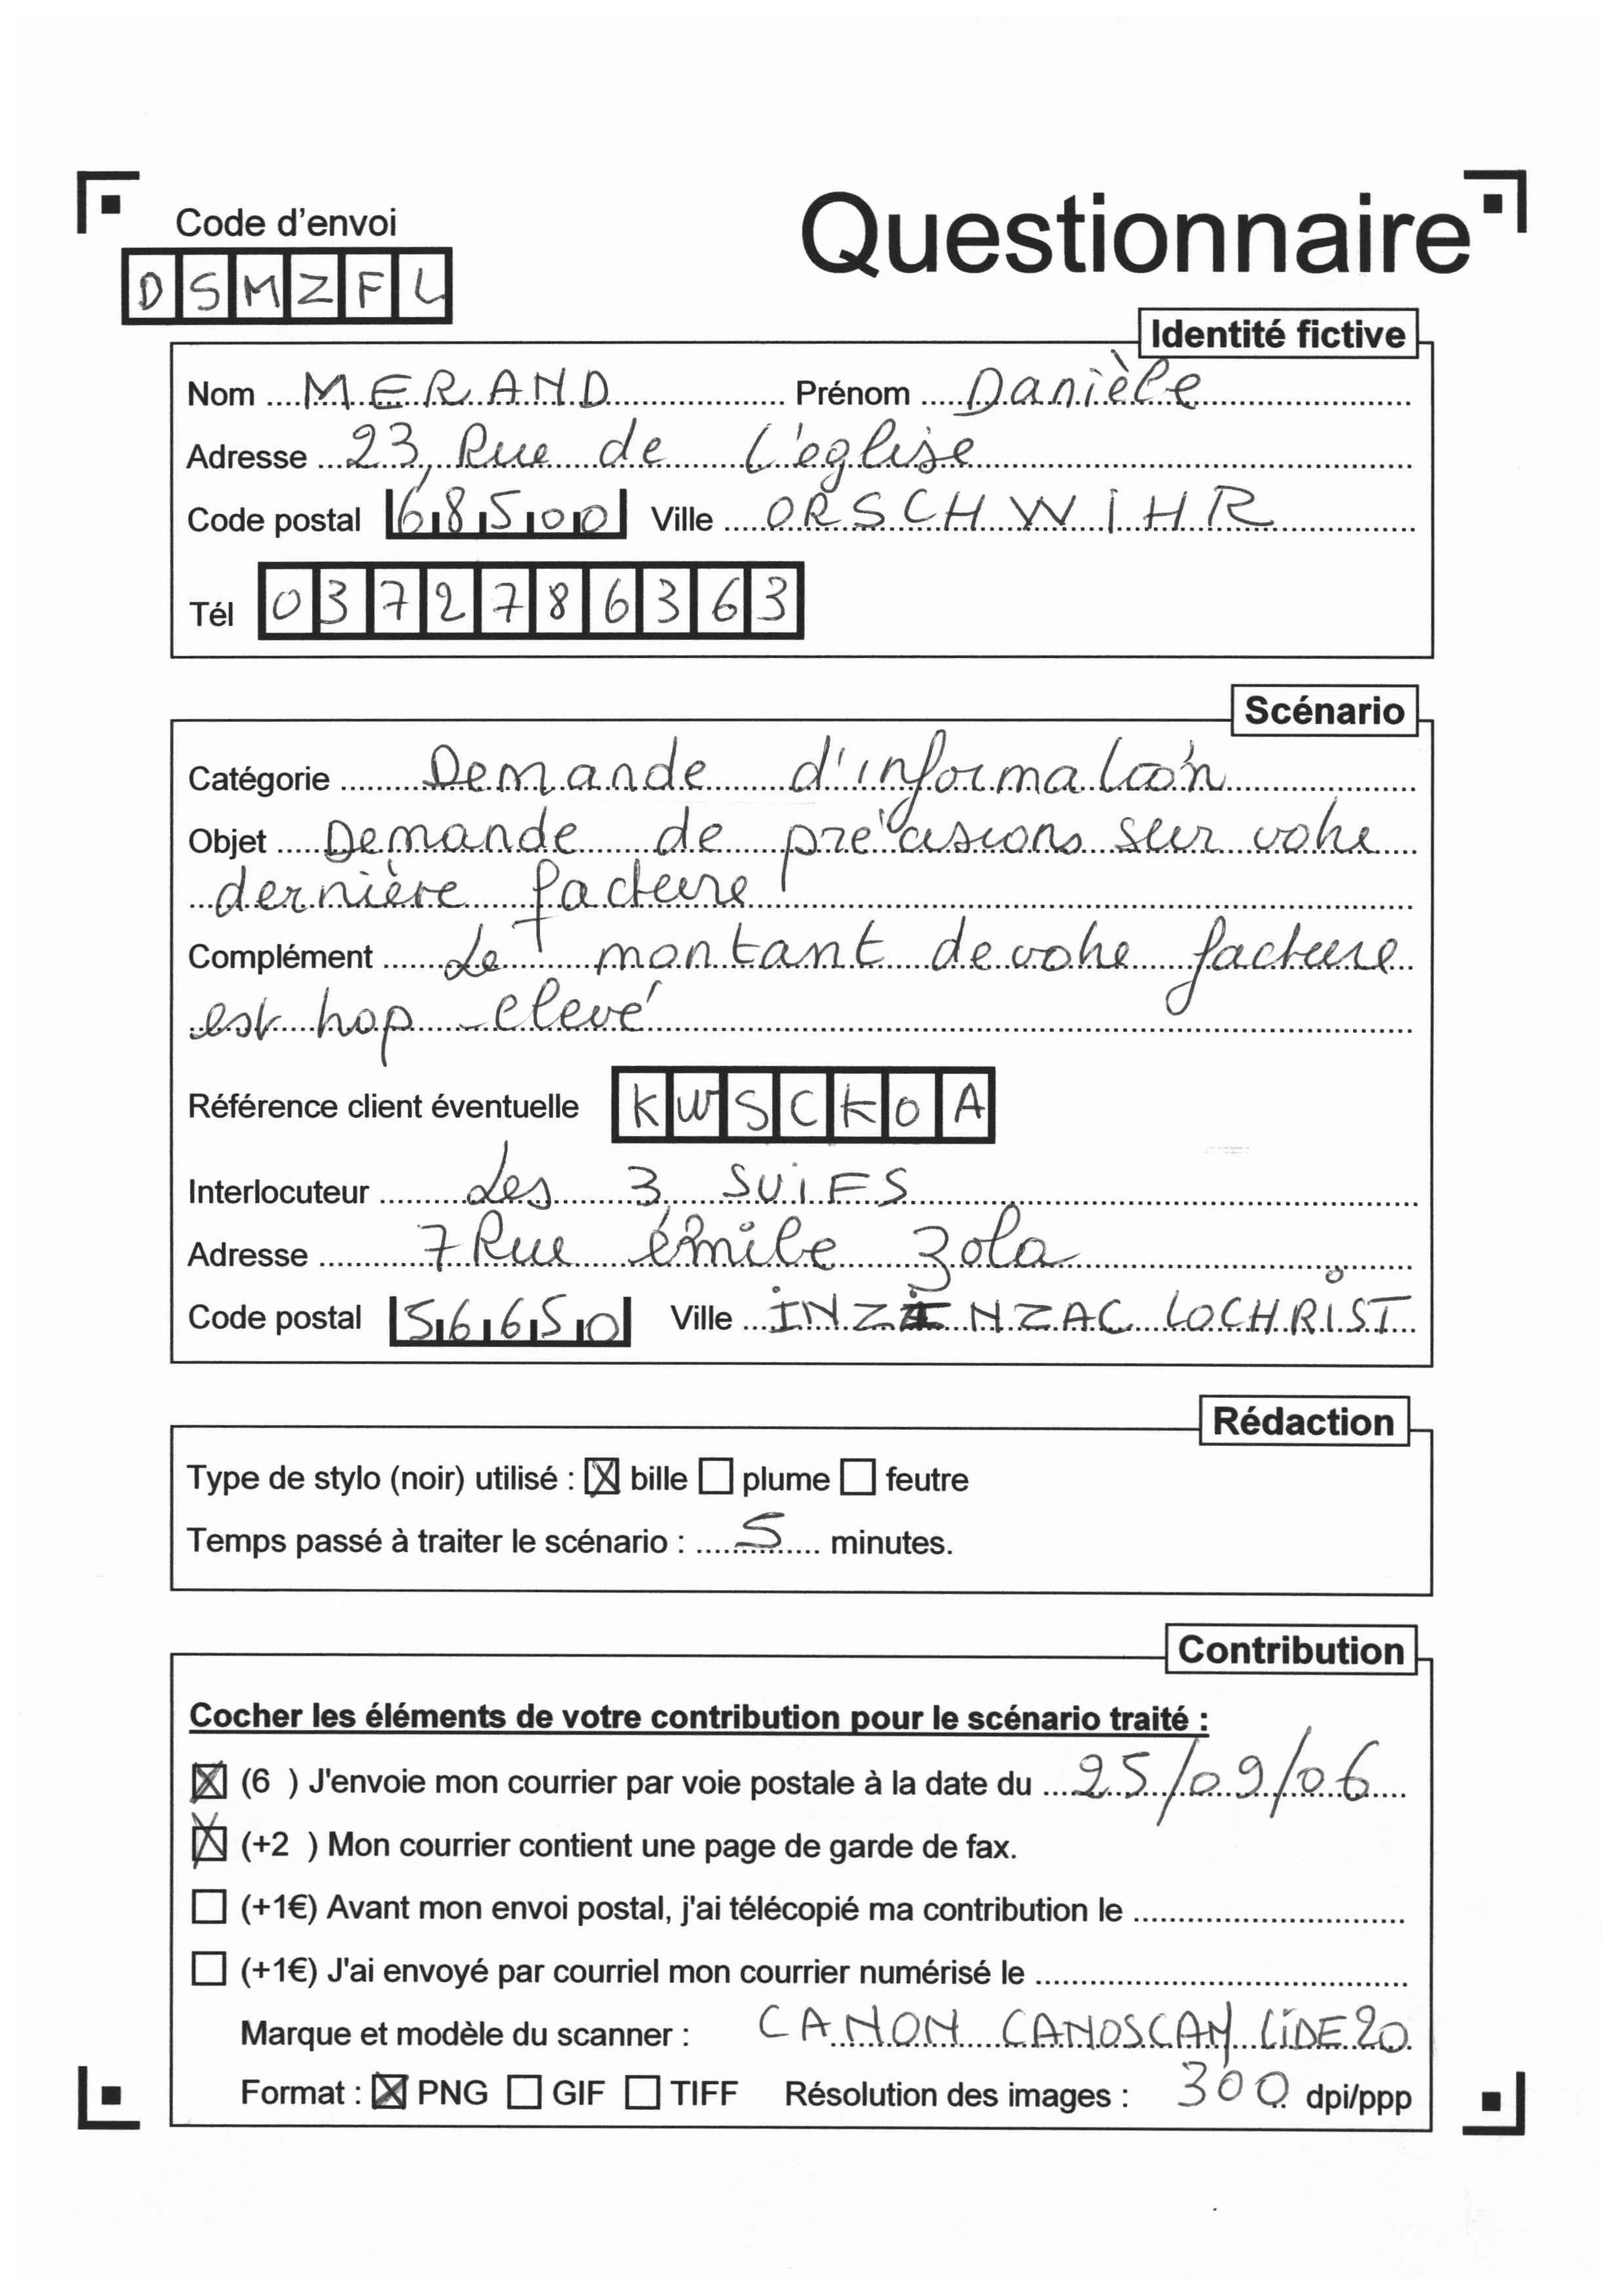 Code d'envoi
Questionnaire
DSMZFL
Identité fictive
Nom MERAND Prénom Danièle
Adresse 23, Rue de l'église
Code postal 68500 Ville ORSCHWIHR
Tél 0372786363
Scénario
Catégorie Demande d'information
Objet Demande de précisions sur votre
dernière facture
Complément Le montant de votre facture
est trop élevé
Référence client éventuelle KWSCKOA
Interlocuteur Les 3 SUiFS
Adresse 7 Rue émile Zola
Code postal 56650 Ville INZINZAC LOCHRIST
Rédaction
Type de stylo (noir) utilisé : ☒ bille ☐ plume ☐ feutre
Temps passé à traiter le scénario : 5 minutes.
Contribution
Cocher les éléments de votre contribution pour le scénario traité :
☒ (6 ) J'envoie mon courrier par voie postale à la date du 25/09/06
☒ (+2 ) Mon courrier contient une page de garde de fax.
☐ (+1€) Avant mon envoi postal, j'ai télécopié ma contribution le
☐ (+1€) J'ai envoyé par courriel mon courrier numérisé le
Marque et modèle du scanner : CANON CANOSCAN LiDE 20
Format : ☒ PNG ☐ GIF ☐ TIFF Résolution des images : 300 dpi/ppp